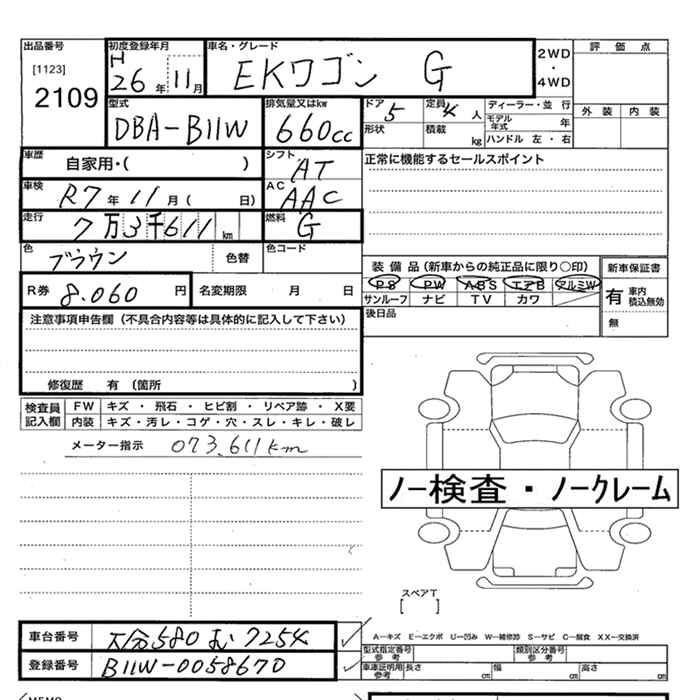 出品番号
[1123]
2109
初度登録年月
H
26年11月
車名・グレード
EKワゴン G
2WD
・
4WD
評価点
外装 内装
型式
DBA-B11W
排気量又はkw
660cc
ドア 5
定員 4 人
形状
積載 kg
ディーラー・並行
モデル年式 年
ハンドル 左・右
車歴
自家用・( )
シフト
AT
正常に機能するセールスポイント
車検
R7年11月( 日)
AC
AAC
走行
7万3千611km
燃料
G
色
ブラウン
色替
色コード
装備品(新車からの純正品に限り○印)
PS PW ABS エアB アルミW
サンルーフ ナビ TV カワ
新車保証書
有 車内積込無効
無
R券 8.060 円
名変期限 月 日
後日品
注意事項申告欄(不具合内容等は具体的に記入して下さい)
修復歴 有(箇所 )
検査員記入欄
FW キズ・飛石・ヒビ割・リペア跡・X要
内装 キズ・汚レ・コゲ・穴・スレ・キレ・破レ
メーター指示 073.611km
ノー検査・ノークレーム
スペアT
[ ]
車台番号
大分580む7254
登録番号
B11W-0058670
A-キズ E-エクボ U-凹み W-補修跡 S-サビ C-腐食 XX-交換済
型式指定番号
参考
類別区分番号
参考
車庫証明用
参考
長さ cm 幅 cm 高さ cm
MEMO